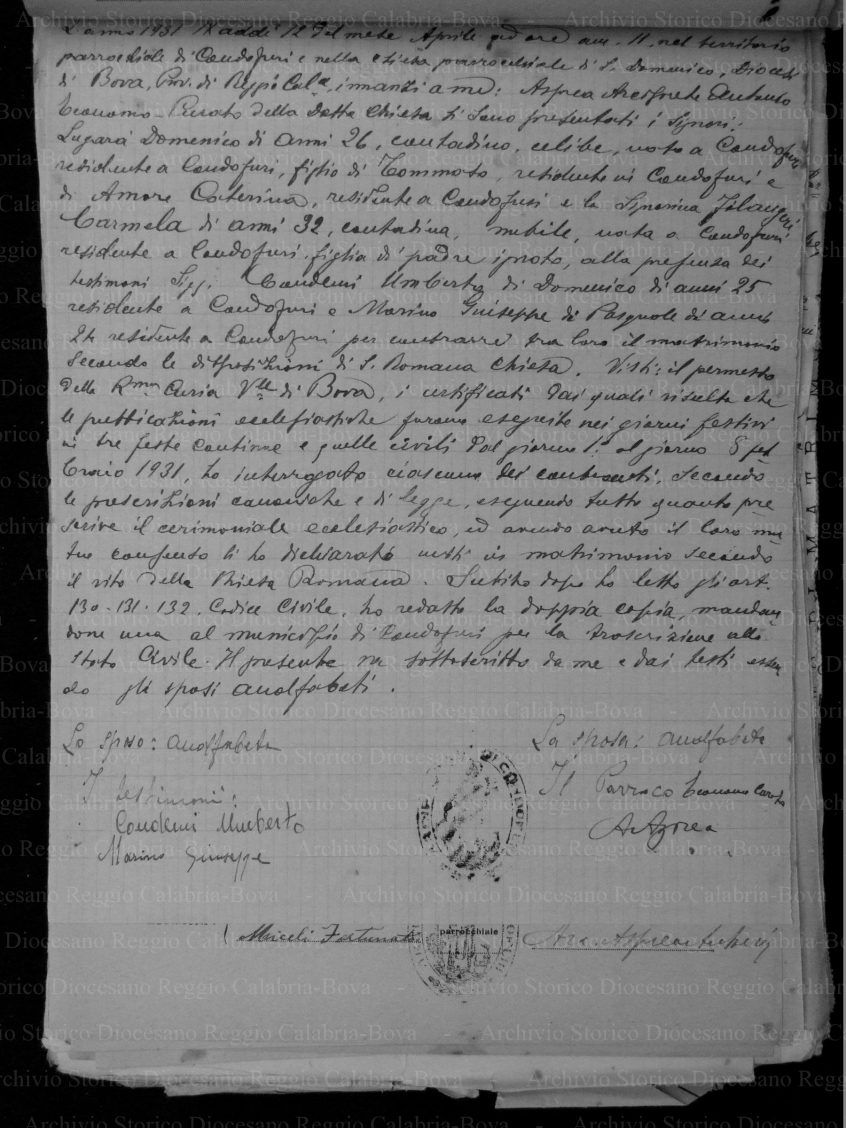 L'anno 1931 IX addì 12 del mese Aprile ad ore am. 11, nel territorio
parrocchiale di Condofuri e nella chiesa parrocchiale di S. Domenico, Diocesi
di Bova, Prov. di Reggio Cala, innanzi a me: Asprea Arciprete Antonio
Economo-Curato della detta Chiesa si sono presentati i Signori:
Lugarà Domenico di anni 26, contadino, celibe, nato a Condofuri
residente a Condofuri, figlio di Tommaso, residente in Condofuri e
di Amore Caterina, residente a Condofuri e la Signorina
Carmela di anni 32, contadina, nubile, nata a Condofuri
residente a Condofuri, figlia di padre ignoto, alla presenza dei
testimoni Sigg. Condemi Umberto di Domenico di anni 25
residente a Condofuri e Marino Giuseppe di Pasquale di anni
24 residente a Condofuri per contrarre tra loro il matrimonio
secondo le disposizioni di S. Romana Chiesa. Visti: il permesso
della Rma Curia Vle di Bova, i certificati dai quali risulta che
le pubblicazioni ecclesiastiche furono eseguite nei giorni festivi
in tre feste continue e quelle civili dal giorno 1: al giorno 8 feb
braio 1931, ho interrogato ciascuno dei contraenti, secondo
le prescrizioni canoniche e di legge, eseguendo tutto quanto pre
scrive il cerimoniale ecclesiastico, ed avendo avuto il loro mu
tuo consenso li ho dichiarato uniti in matrimonio secondo
il rito della Chiesa Romana. Subito dopo ho letto gli art.
130-131-132. Codice Civile, ho redatto la doppia copia, mandan
done una al municipio di Condofuri per la trascrizione allo
Stato Civile. Il presente vn sottoscritto da me e dai testi essen
do gli sposi analfabeti.
Lo sposo: analfabeta
La sposa: analfabeta
I testimoni:
Il Parroco Economo Curato
Condemi Umberto
A. Asprea
Marino Giuseppe
Miceli Fortunato
parrocchiale
Archivio Storico Diocesano Reggio Calabria-Bova